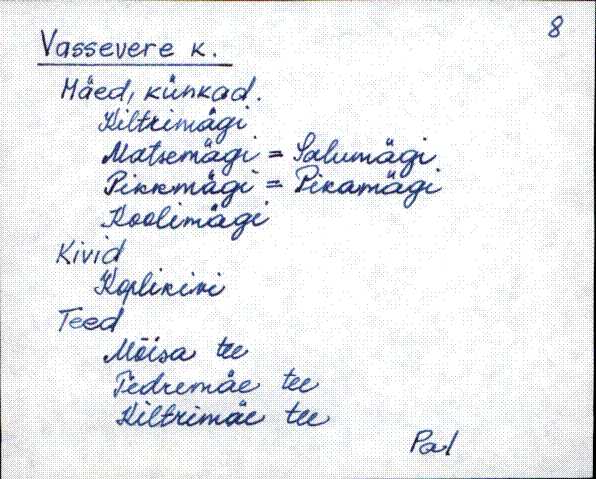 8
Vassevere k.
Mäed, künkad.
Kiltrimägi
Matsemägi = Salumägi
Pikkmägi = Pikamägi
Koolimägi
Kivid
Koplikivi
Teed
Mõisa tee
Pedremäe tee
Kiltrimäe tee
Pal